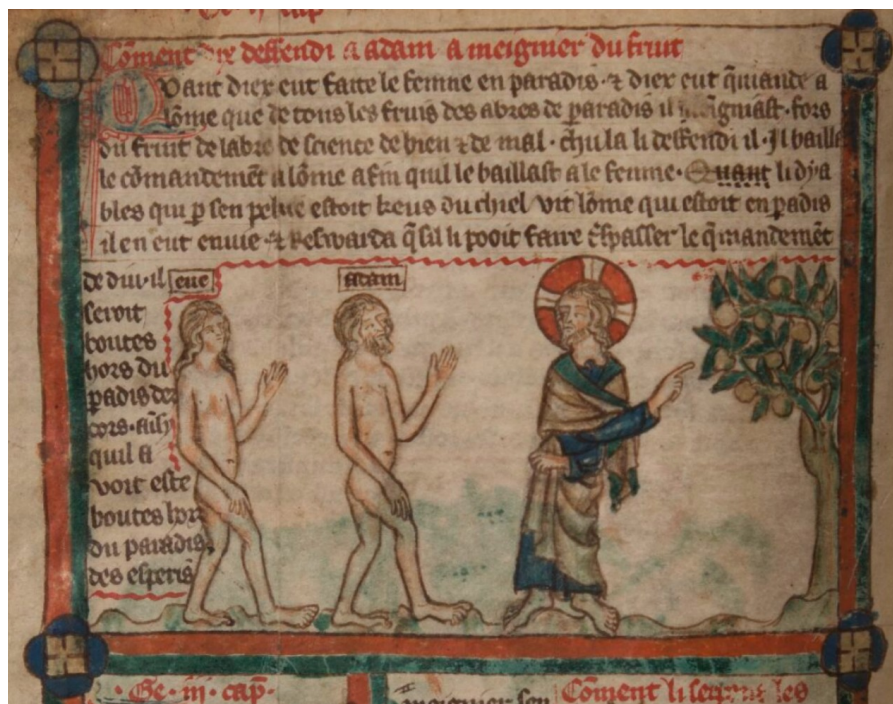 Ge · ii · cap̄
Cōment dix deffendi a adam a meignier du fruit
Qvant diex eut faite le femne en paradis · ⁊ diex eut q̄mande a
lōme que de tous les fruis des abres de paradis il meignast · fors
du fruit de labre de science de bien ⁊ de mal · chula li deffendi il · Il bailla
le cōmandemēt a lōme afin quil le baillast a le femne · Quant li dya
bles qui p sen pechie estoit keus du chiel vit lōme qui estoit en padis
il en eut enuie ⁊ Reswarda q̄ sil li pooit faire t̄spasser le q̄mandemēt
de diu · il
eue
adam
seroit
boutes
hors du
padis des
cors · ausy
quil a
voit este
boutes hors
du paradis
des esperis
· Ge · iii · cap̄ ·
meignier son
Cōment li serpens les